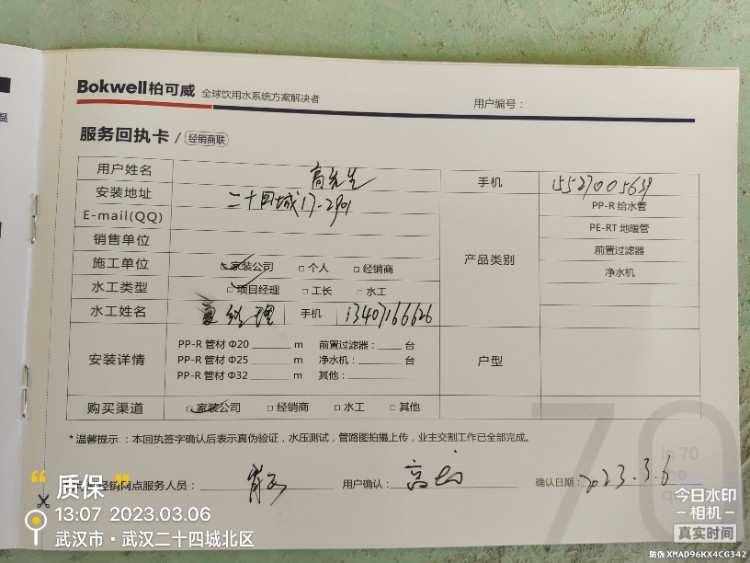 Bokwell柏可威 全球饮用水系统方案解决者 用户编号：
服务回执卡 / 经销商联
用户姓名 高先生 手机 15527005639
安装地址 二十四城17-2901
E-mail(QQ)
销售单位
产品类别
PP-R 给水管
PE-RT 地暖管
前置过滤器
净水机
施工单位 家装公司 个人 经销商
水工类型 项目经理 工长 水工
水工姓名 夏经理 手机 13407166626
安装详情
PP-R 管材 Φ20 m 前置过滤器： 台
PP-R 管材 Φ25 m 净水机： 台
PP-R 管材 Φ32 m 其他：
户型
购买渠道 家装公司 经销商 水工 其他
*温馨提示：本回执签字确认后表示真伪验证，水压测试，管路图拍摄上传，业主交割工作已全部完成。
经销网点服务人员： 用户确认： 确认日期： 2023.3.6
70
in 70
质保
13:07 2023.03.06
武汉市·武汉二十四城北区
今日水印
-相机-
真实时间
防伪 XMAD96KX4CG342